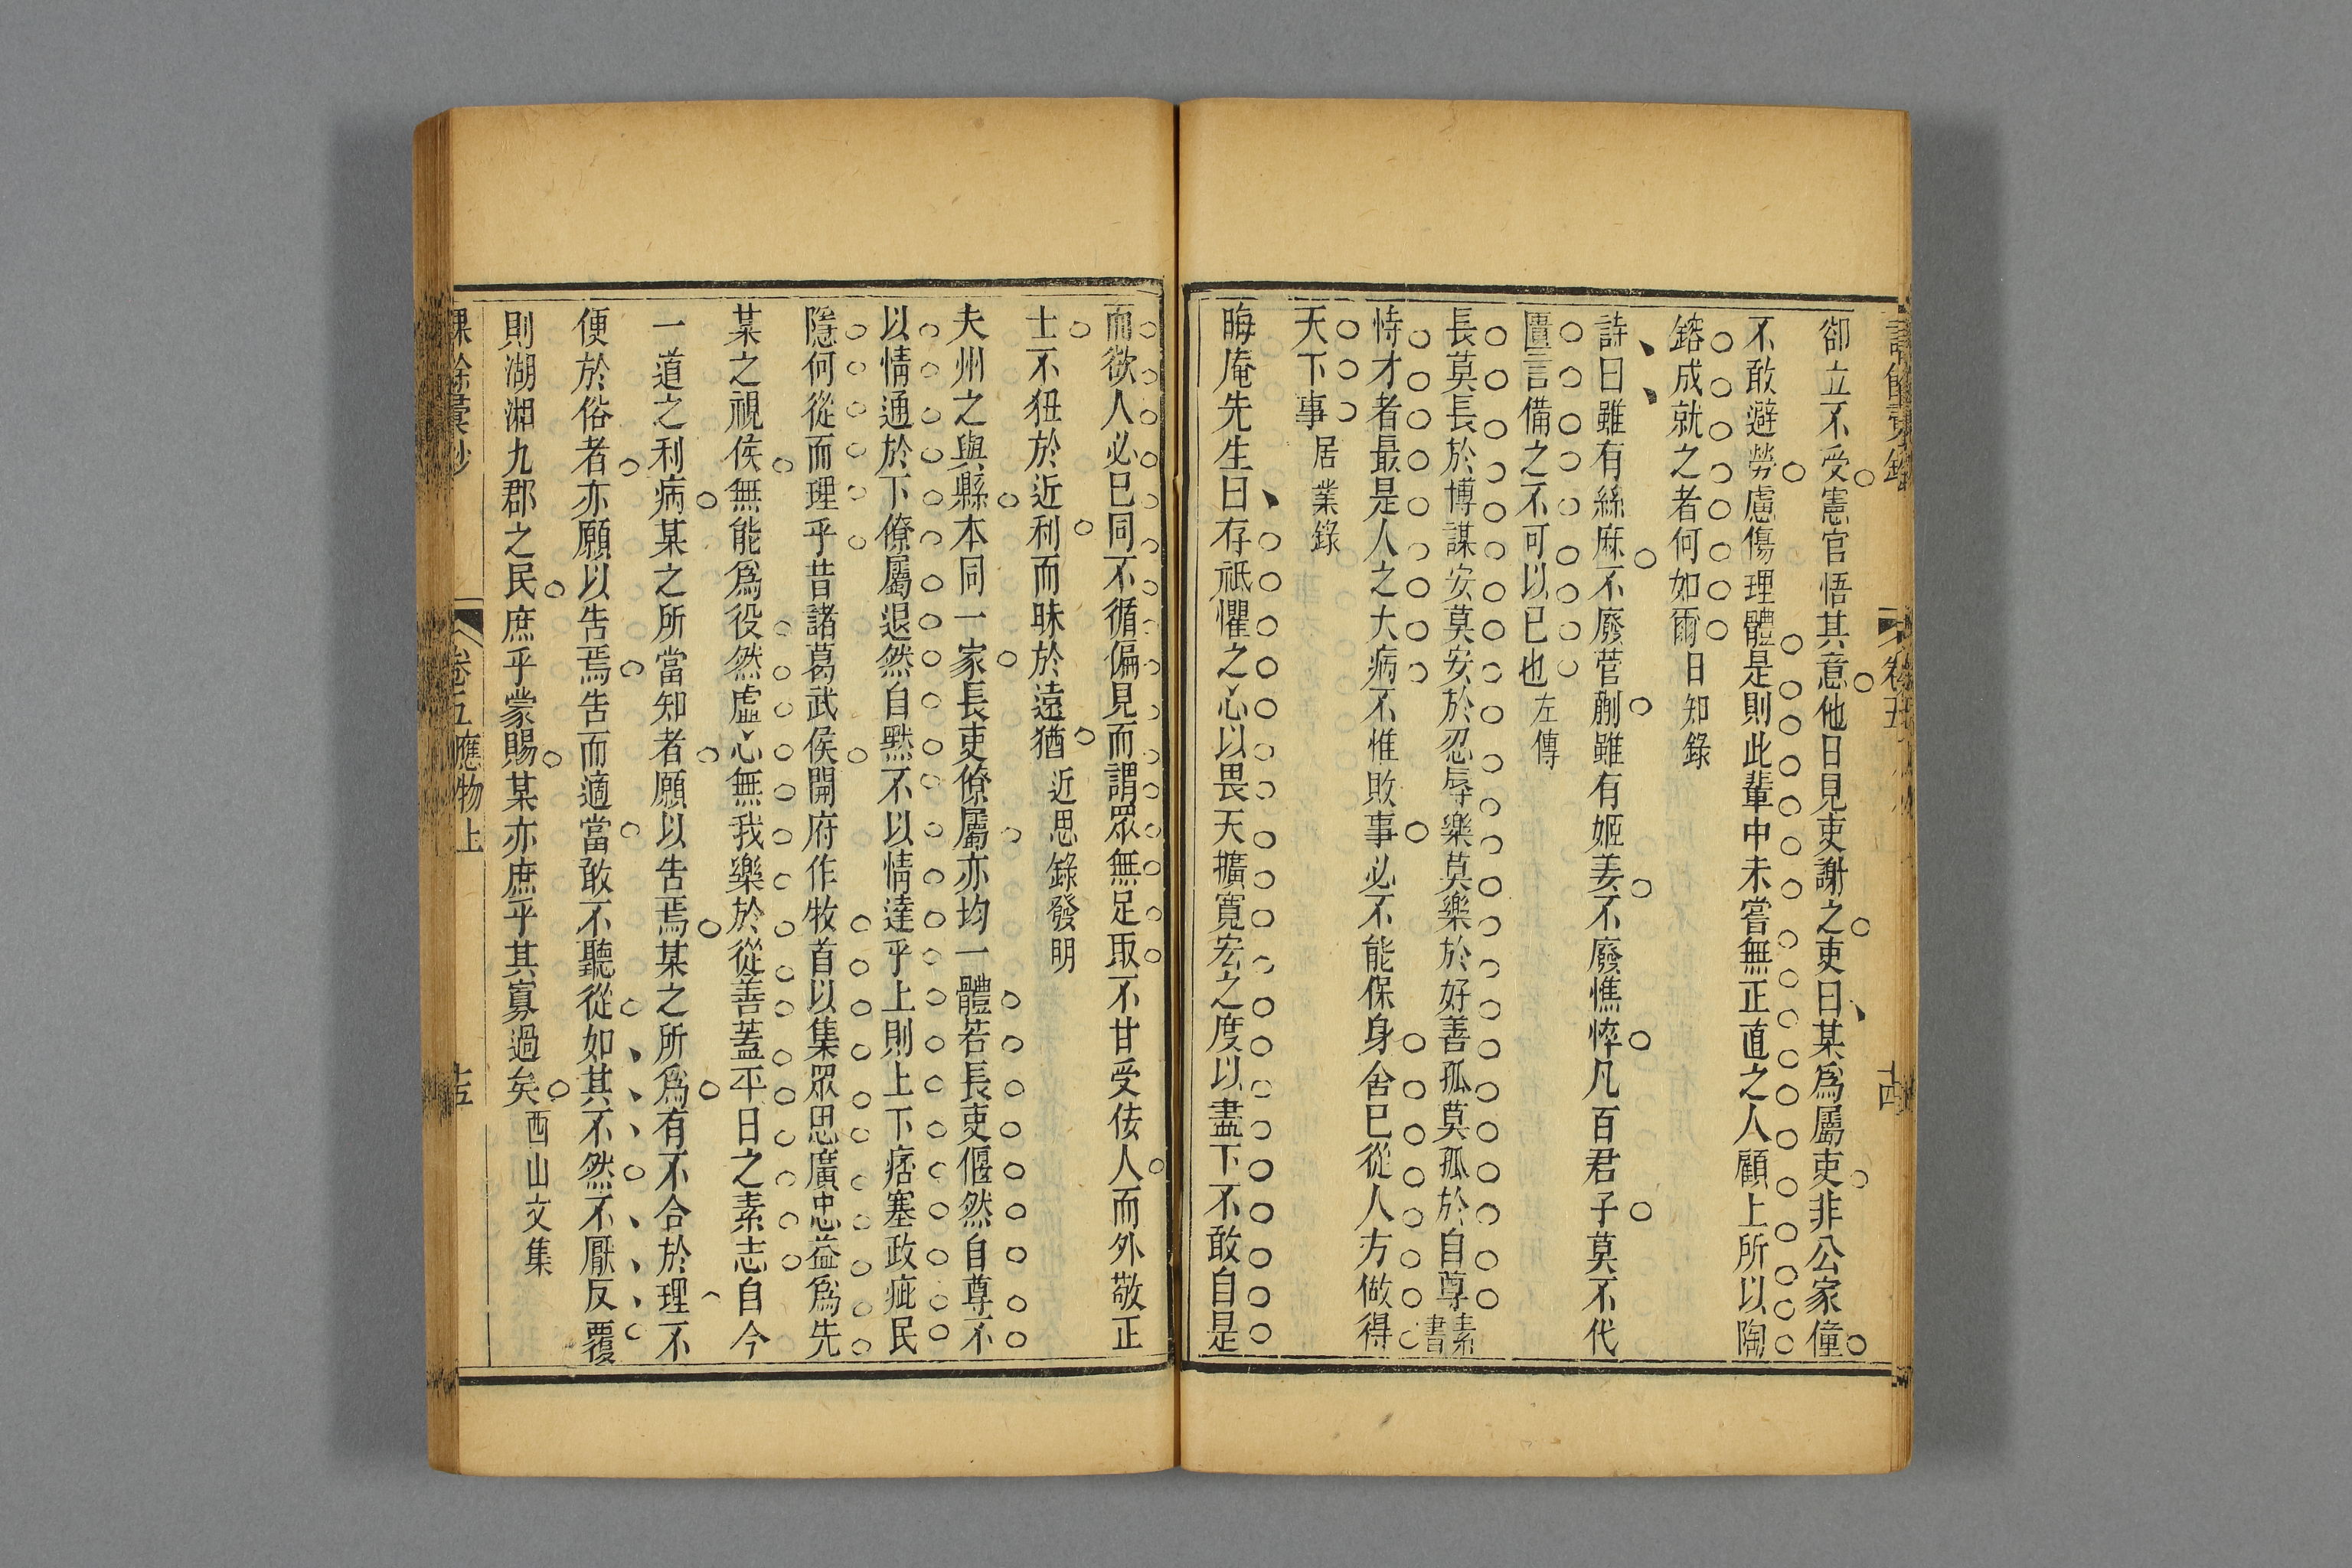 卻立不受憲官悟其意他日見吏謝之吏曰某爲屬吏非公家僮
不敢避勞慮傷理體是則此輩中未嘗無正直之人顧上所以陶
鎔成就之者何如爾日知錄
詩曰雖有絲麻不廢菅蒯雖有姬姜不廢憔悴凡百君子莫不代
匱言備之不可以已也左傳
長莫長於博謀安莫安於忍辱樂莫樂於好善孤莫孤於自尊素書
恃才者最是人之大病不惟敗事必不能保身舍已從人方做得
天下事居業錄
晦庵先生曰存祗懼之心以畏天擴寬宏之度以盡下不敢自是
而欲人必已同不循偏見而謂眾無足取不甘受佞人而外敬正
士不狃於近利而昧於遠猶近思錄發明
夫州之與縣本同一家長吏僚屬亦均一體若長吏偃然自尊不
以情通於下僚屬退然自默不以情達乎上則上下痞塞政疵民
隱何從而理乎昔諸葛武侯開府作牧首以集眾思廣忠益爲先
某之視侯無能爲役然虛心無我樂於從善蓋平日之素志自今
一道之利病某之所當知者願以告焉某之所爲有不合於理不
便於俗者亦願以告焉告而適當敢不聽從如其不然不厭反覆
則湖湘九郡之民庶乎蒙賜某亦庶乎其寡過矣西山文集
卷五應物上
十五